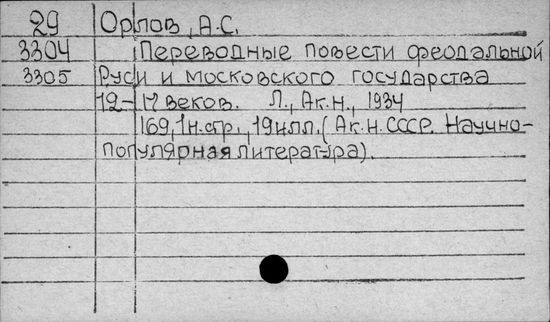 29 Орлов, А.С.
3304 Переводные повести феодальной
3305 Руси и Московского государства
12-17 веков. Л., Ак.н., 1934
169, 1н.стр., 19илл. (Ак.н. СССР. Научно-
популярная литература).